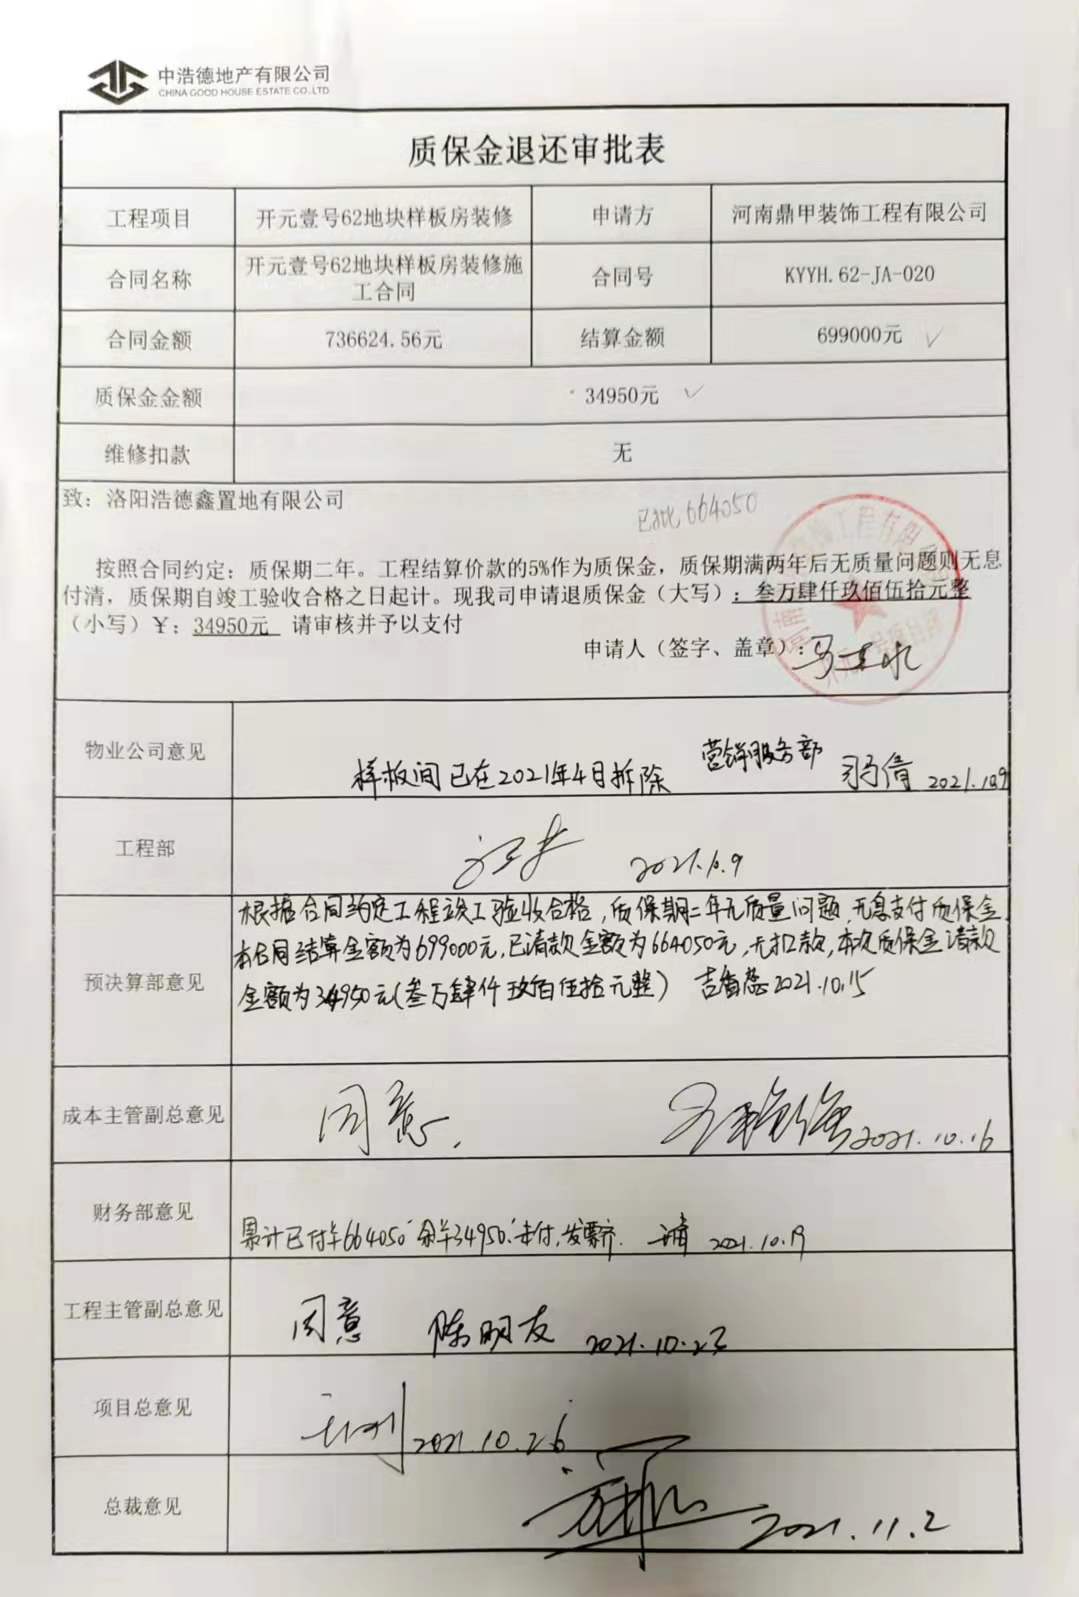 中浩德地产有限公司
CHINA GOOD HOUSE ESTATE CO.,LTD
质保金退还审批表
工程项目 开元壹号62地块样板房装修 申请方 河南鼎甲装饰工程有限公司
合同名称 开元壹号62地块样板房装修施工合同 合同号 KYYH.62-JA-020
合同金额 736624.56元 结算金额 699000元 ✓
质保金金额 34950元 ✓
维修扣款 无
致：洛阳浩德鑫置地有限公司
已批664050
按照合同约定：质保期二年。工程结算价款的5%作为质保金，质保期满两年后无质量问题则无息
付清，质保期自竣工验收合格之日起计。现我司申请退质保金（大写）：叁万肆仟玖佰伍拾元整
（小写）￥：34950元 请审核并予以支付
申请人（签字、盖章）：
物业公司意见 样板间已在2021年4月拆除 营销服务部 2021.10.9
工程部 2021.10.9
预决算部意见
根据合同约定工程竣工验收合格，质保期二年无质量问题，无息支付质保金
本合同结算金额为699000元，已请款金额为664050元，无扣款，本次质保金请款
金额为34950元（叁万肆仟玖佰伍拾元整） 2021.10.15
成本主管副总意见 同意. 2021.10.16
财务部意见 累计已付￥664050 余￥34950未付，发票齐. 2021.10.19
工程主管副总意见 同意 陈明友 2021.10.23
项目总意见 2021.10.26
总裁意见 2021.11.2